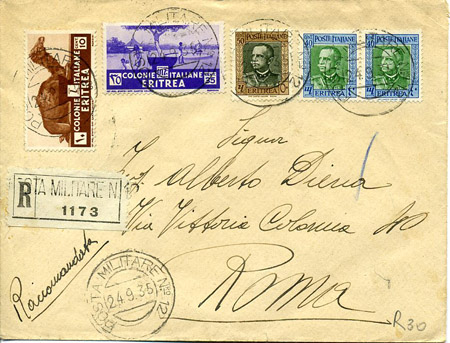 10
COLONIE ITALIANE
ERITREA
COLONIE ITALIANE
ERITREA
10
25
POSTE ITALIANE
ERITREA
POSTE ITALIANE
ERITREA
POSTE ITALIANE
ERITREA
Signor
Alberto Diena
Via Vittoria Colonna 40
Roma
R
POSTA MILITARE N.
1173
Raccomandata
POSTA MILITARE No 12
24.9.35
R30